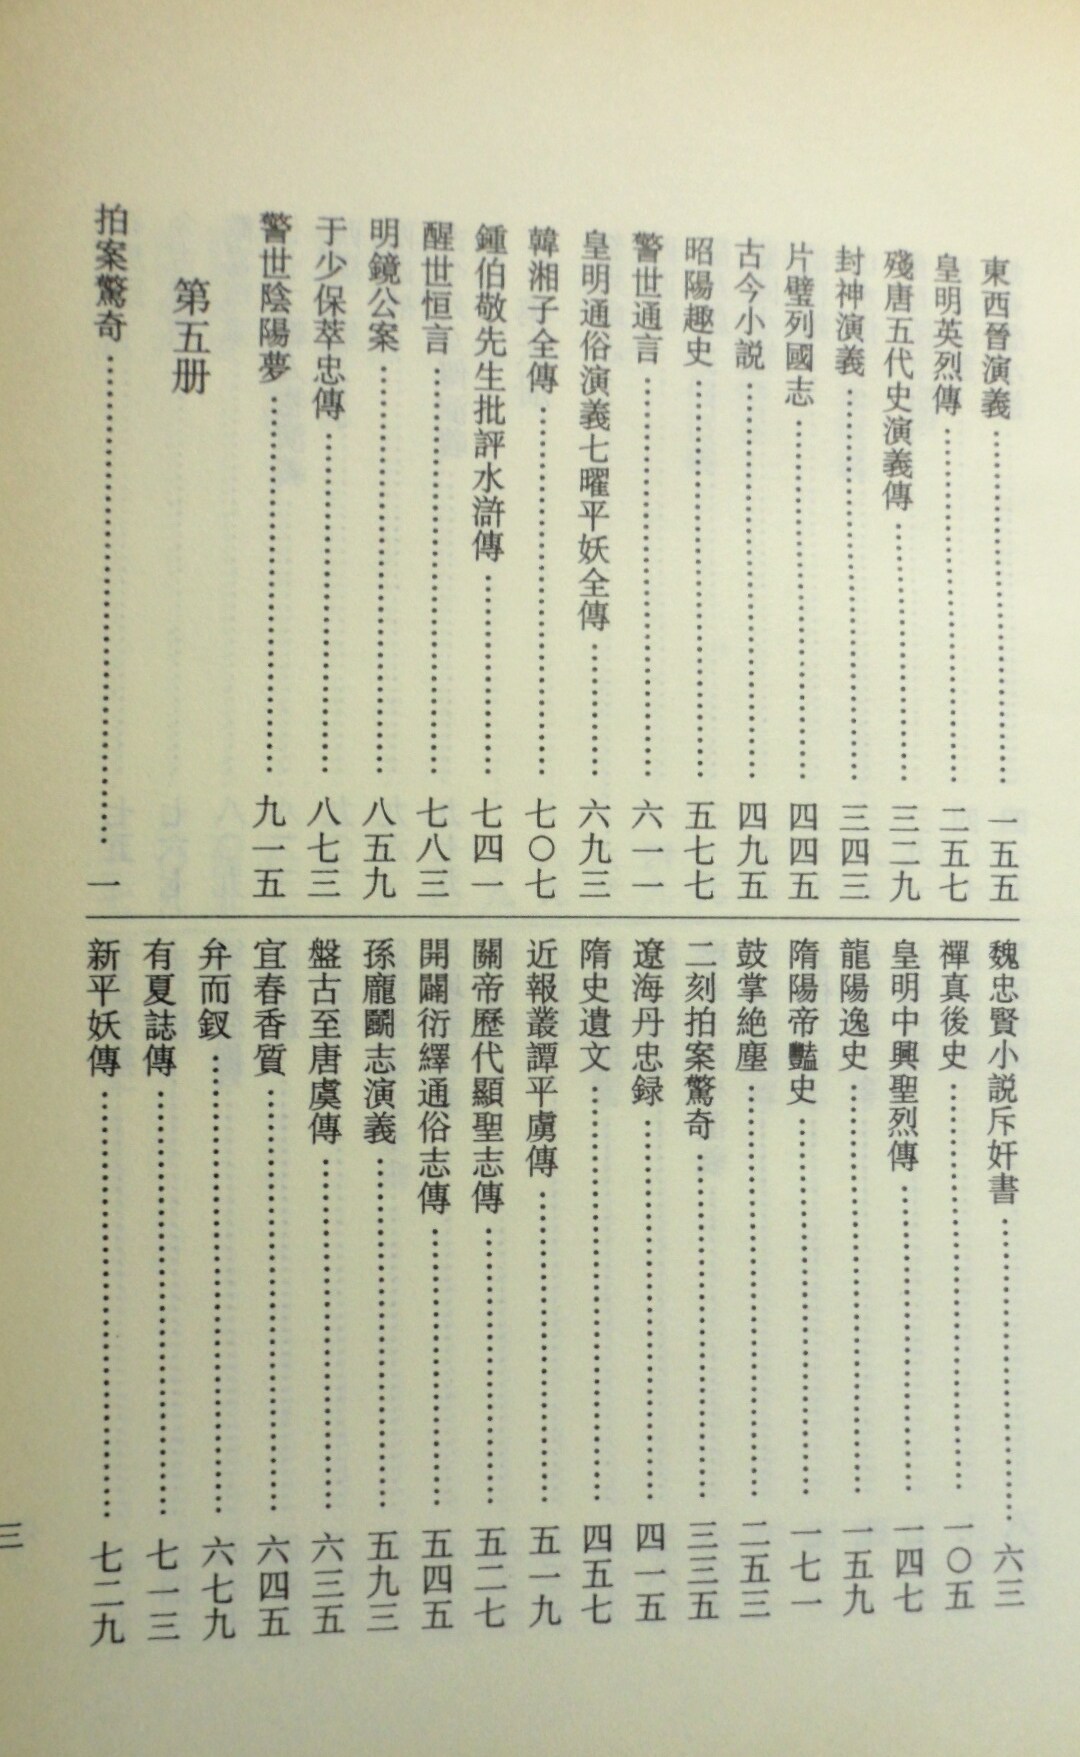 東西晉演義……一五五
皇明英烈傳……二五七
殘唐五代史演義傳……三二九
封神演義……三四三
片璧列國志……四四五
古今小説……四九五
昭陽趣史……五七七
警世通言……六一一
皇明通俗演義七曜平妖全傳……六九三
韓湘子全傳……七〇七
鍾伯敬先生批評水滸傳……七四一
醒世恒言……七八三
明鏡公案……八五九
于少保萃忠傳……八七三
警世陰陽夢……九一五
第五册
拍案驚奇……一
魏忠賢小説斥奸書……六三
禪真後史……一〇五
皇明中興聖烈傳……一四七
龍陽逸史……一五九
隋煬帝豔史……一七一
鼓掌絶塵……二五三
二刻拍案驚奇……三三五
遼海丹忠録……四一五
隋史遺文……四五七
近報叢譚平虜傳……五一九
關帝歷代顯聖志傳……五二七
開闢衍繹通俗志傳……五四五
孫龐鬭志演義……五九三
盤古至唐虞傳……六三五
宜春香質……六四五
弁而釵……六七九
有夏誌傳……七一三
新平妖傳……七二九
三